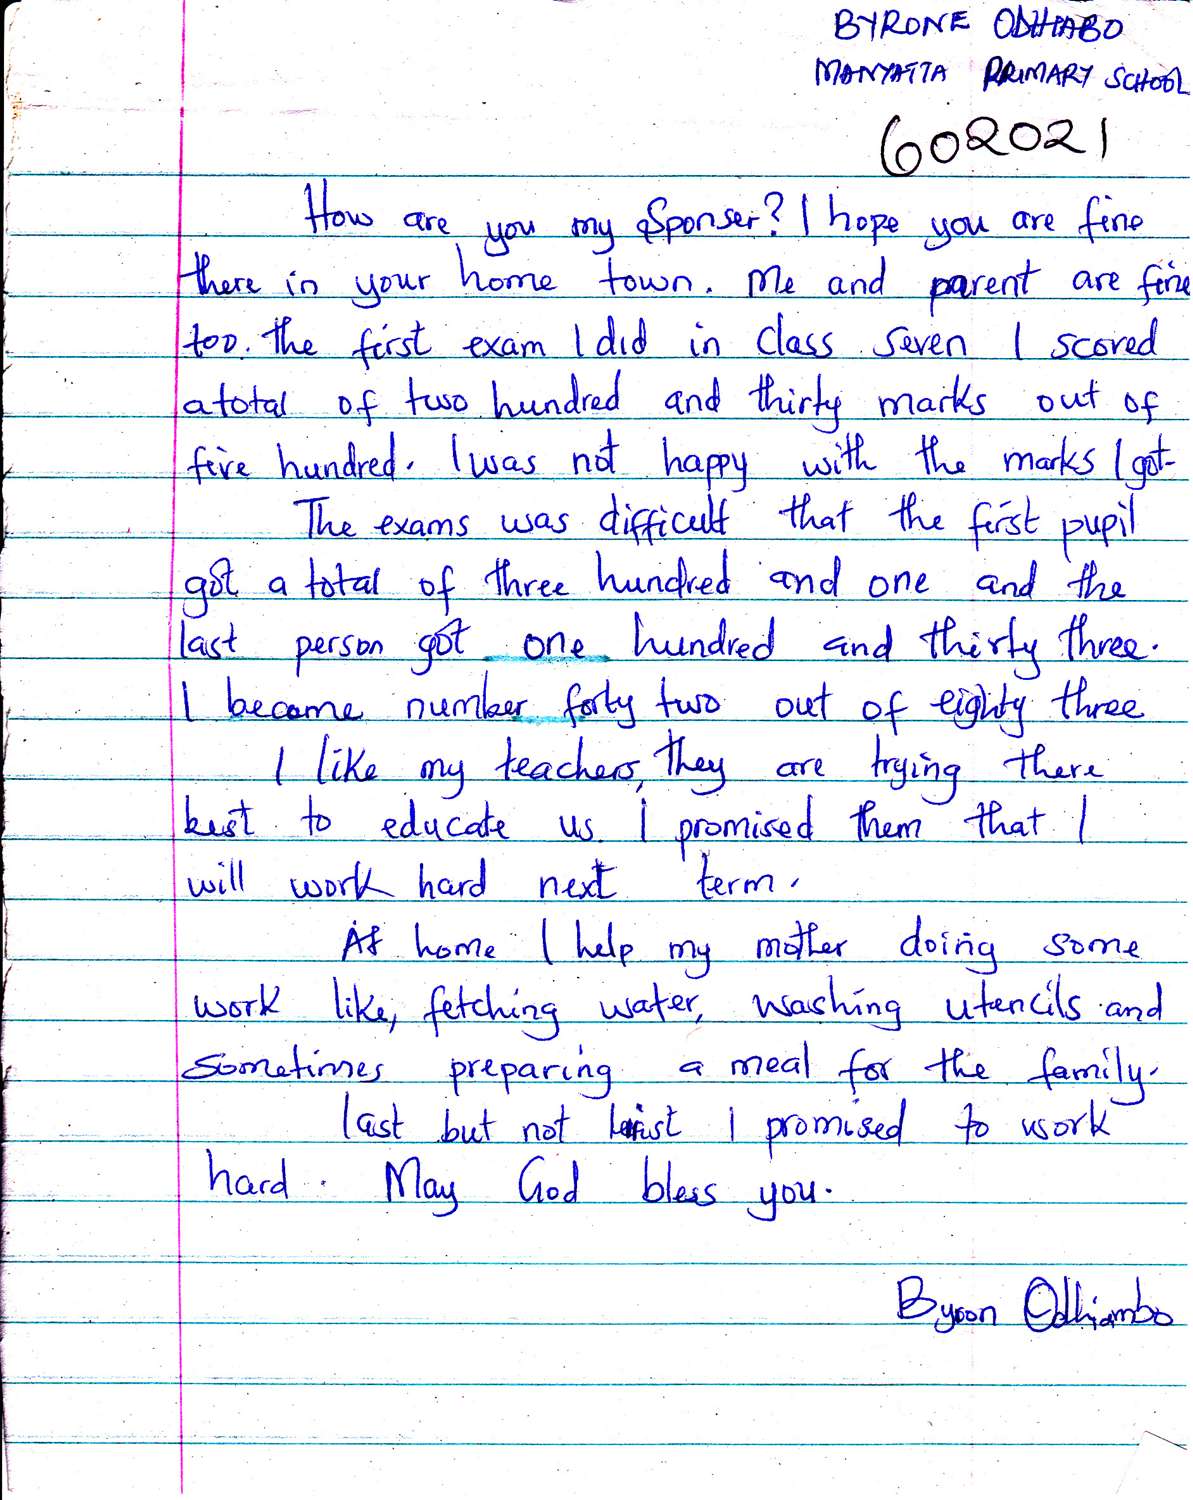 BYRONE ODHIABO
MANYATTA PRIMARY SCHOOL
602021
How are you my Sponser? I hope you are fine
there in your home town. Me and parent are fine
too. The first exam I did in class seven I scored
a total of two hundred and thirty marks out of
five hundred. I was not happy with the marks I got.
The exams was difficult that the first pupil
got a total of three hundred and one and the
last person got one hundred and thirty three.
I became number forty two out of eighty three
I like my teachers, they are trying there
best to educate us. I promised them that I
will work hard next term.
At home I help my mother doing some
work like, fetching water, washing utencils and
sometimes preparing a meal for the family.
last but not I promised to work
hard. May God bless you.
Byron Odhiambo